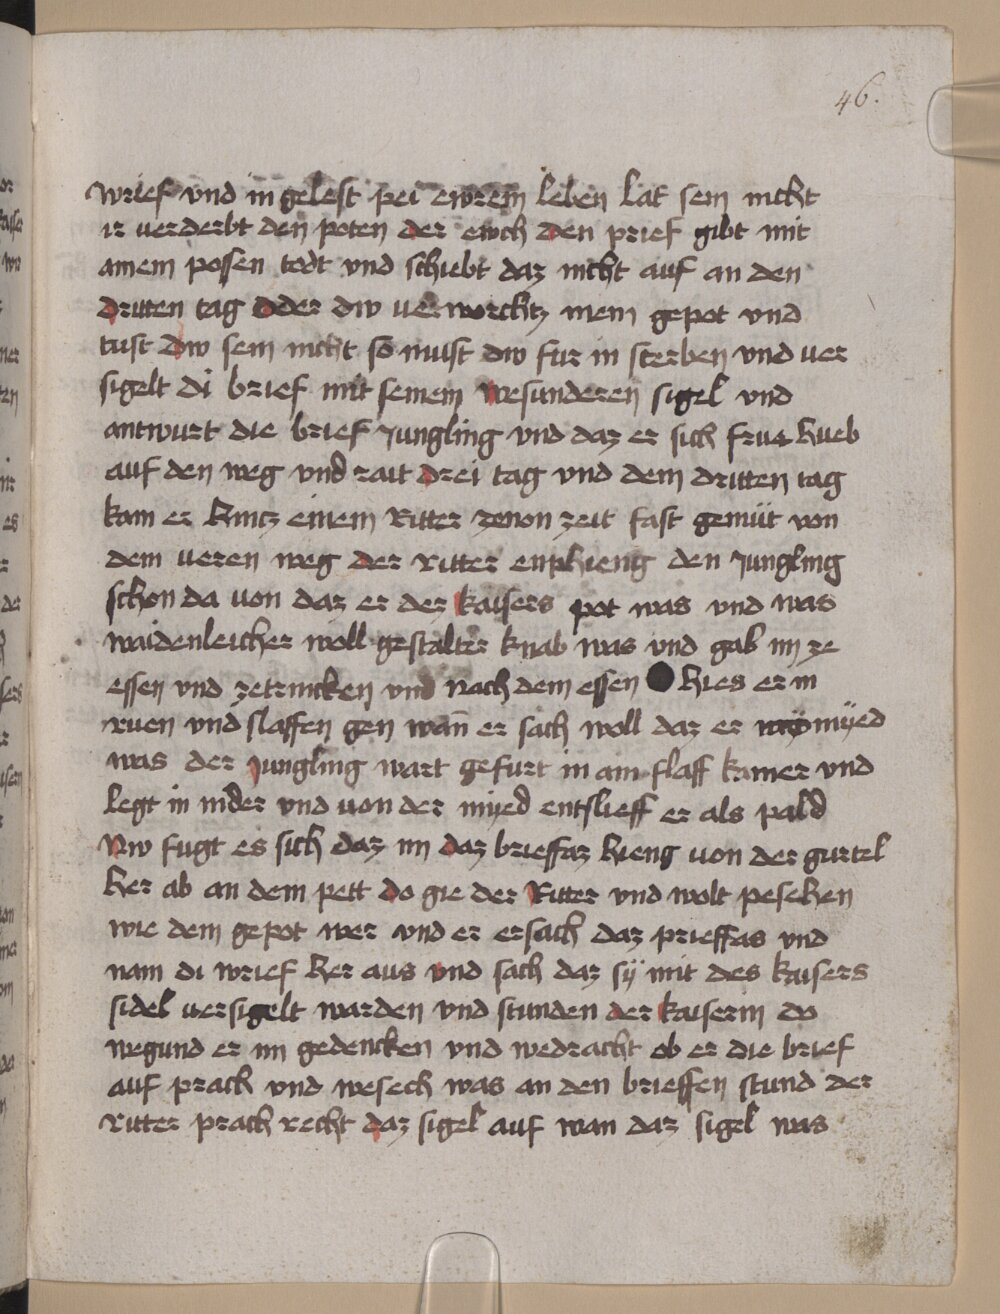 46.
wrief vnd in gelest pei ewrem leben lat sein nicht
ir verderbt den poten der ewch den prief gibt mit
ainem possen todt vnd schiebt daz nicht auf an den
dritten tag Oder diw verworchtz mein gepot vnd
tust diw sein nicht so muist diw fur in sterben vnd ver
sigelt di brief mit seinem wesunderen sigel vnd
antwurt die brief Jungling vnd daz er sich frue hueb
auf den weg vnd rait drei tag vnd dem dritten tag
kam er hintz einem Ritter zenon zeit fast gemüt von
dem veren weg der ritter enphieng den Jungling
schon da von daz er der kaisers pot was vnd was
waidenleicher woll gestalter knab was vnd gab im ze
essen vnd zetrincken vnd nach dem essen hies er in
ruen vnd slaffen gen wan̄ er sach woll daz er müed
was der Jungling wart gefurt in ain slaff kamer vnd
legt in nider vnd von der müed entslieff er als pald
Nw fugt es sich daz im daz brieffaz hieng von der gurtel
her ab an dem pett do gie der Ritter vnd wolt pesehen
wie dem gepot wer vnd er ersach daz prieffas vnd
nam di wrief her aus vnd sach daz sÿ mit des kaisers
sidel versigelt warden vnd stunden der kaiserin do
wegund er im gedencken vnd wedracht ob er die brief
auf prach vnd wesech was an den brieffen stund der
ritter prach recht daz sigel auf wan daz sigel was